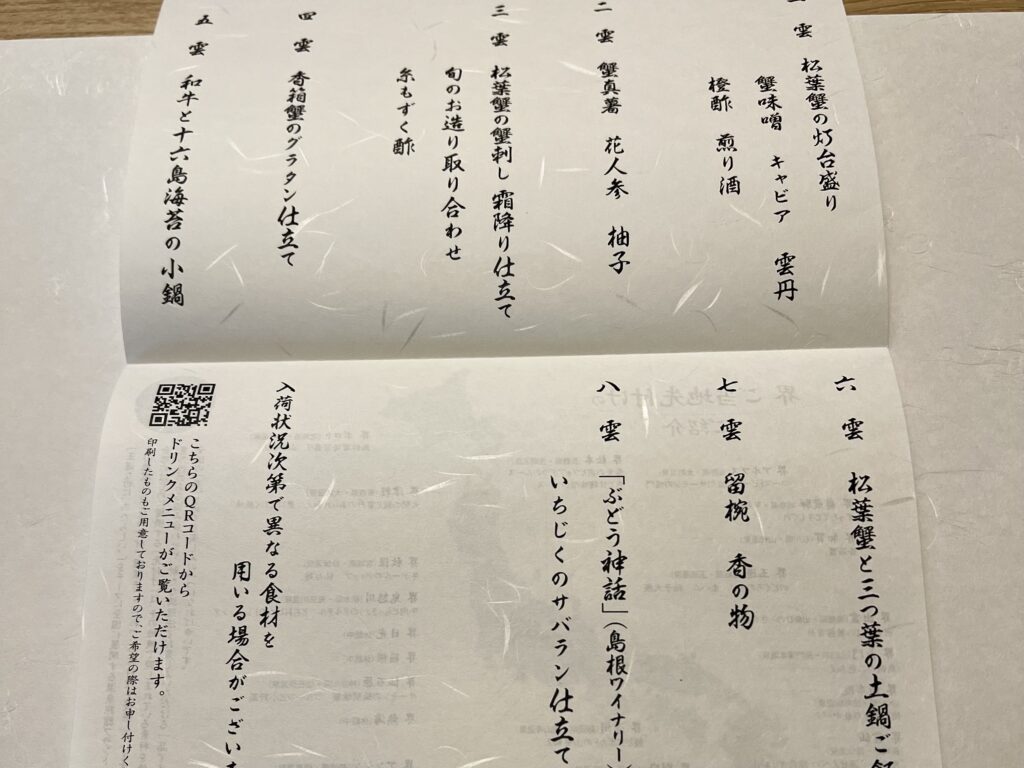 一 雲 松葉蟹の灯台盛り
蟹味噌 キャビア 雲丹
橙酢 煎り酒
二 雲 蟹真薯 花人参 柚子
三 雲 松葉蟹の蟹刺し 霜降り仕立て
旬のお造り取り合わせ
糸もずく酢
四 雲 香箱蟹のグラタン仕立て
五 雲 和牛と十六島海苔の小鍋
六 雲 松葉蟹と三つ葉の土鍋ご飯
七 雲 留椀 香の物
八 雲 「ぶどう神話」（島根ワイナリー）
いちじくのサバラン仕立て
入荷状況次第で異なる食材を
用いる場合がございま
こちらのQRコードから
ドリンクメニューがご覧いただけます。
印刷したものもご用意しておりますので、ご希望の際はお申し付けく
界 ご当地先付け。
ご紹介